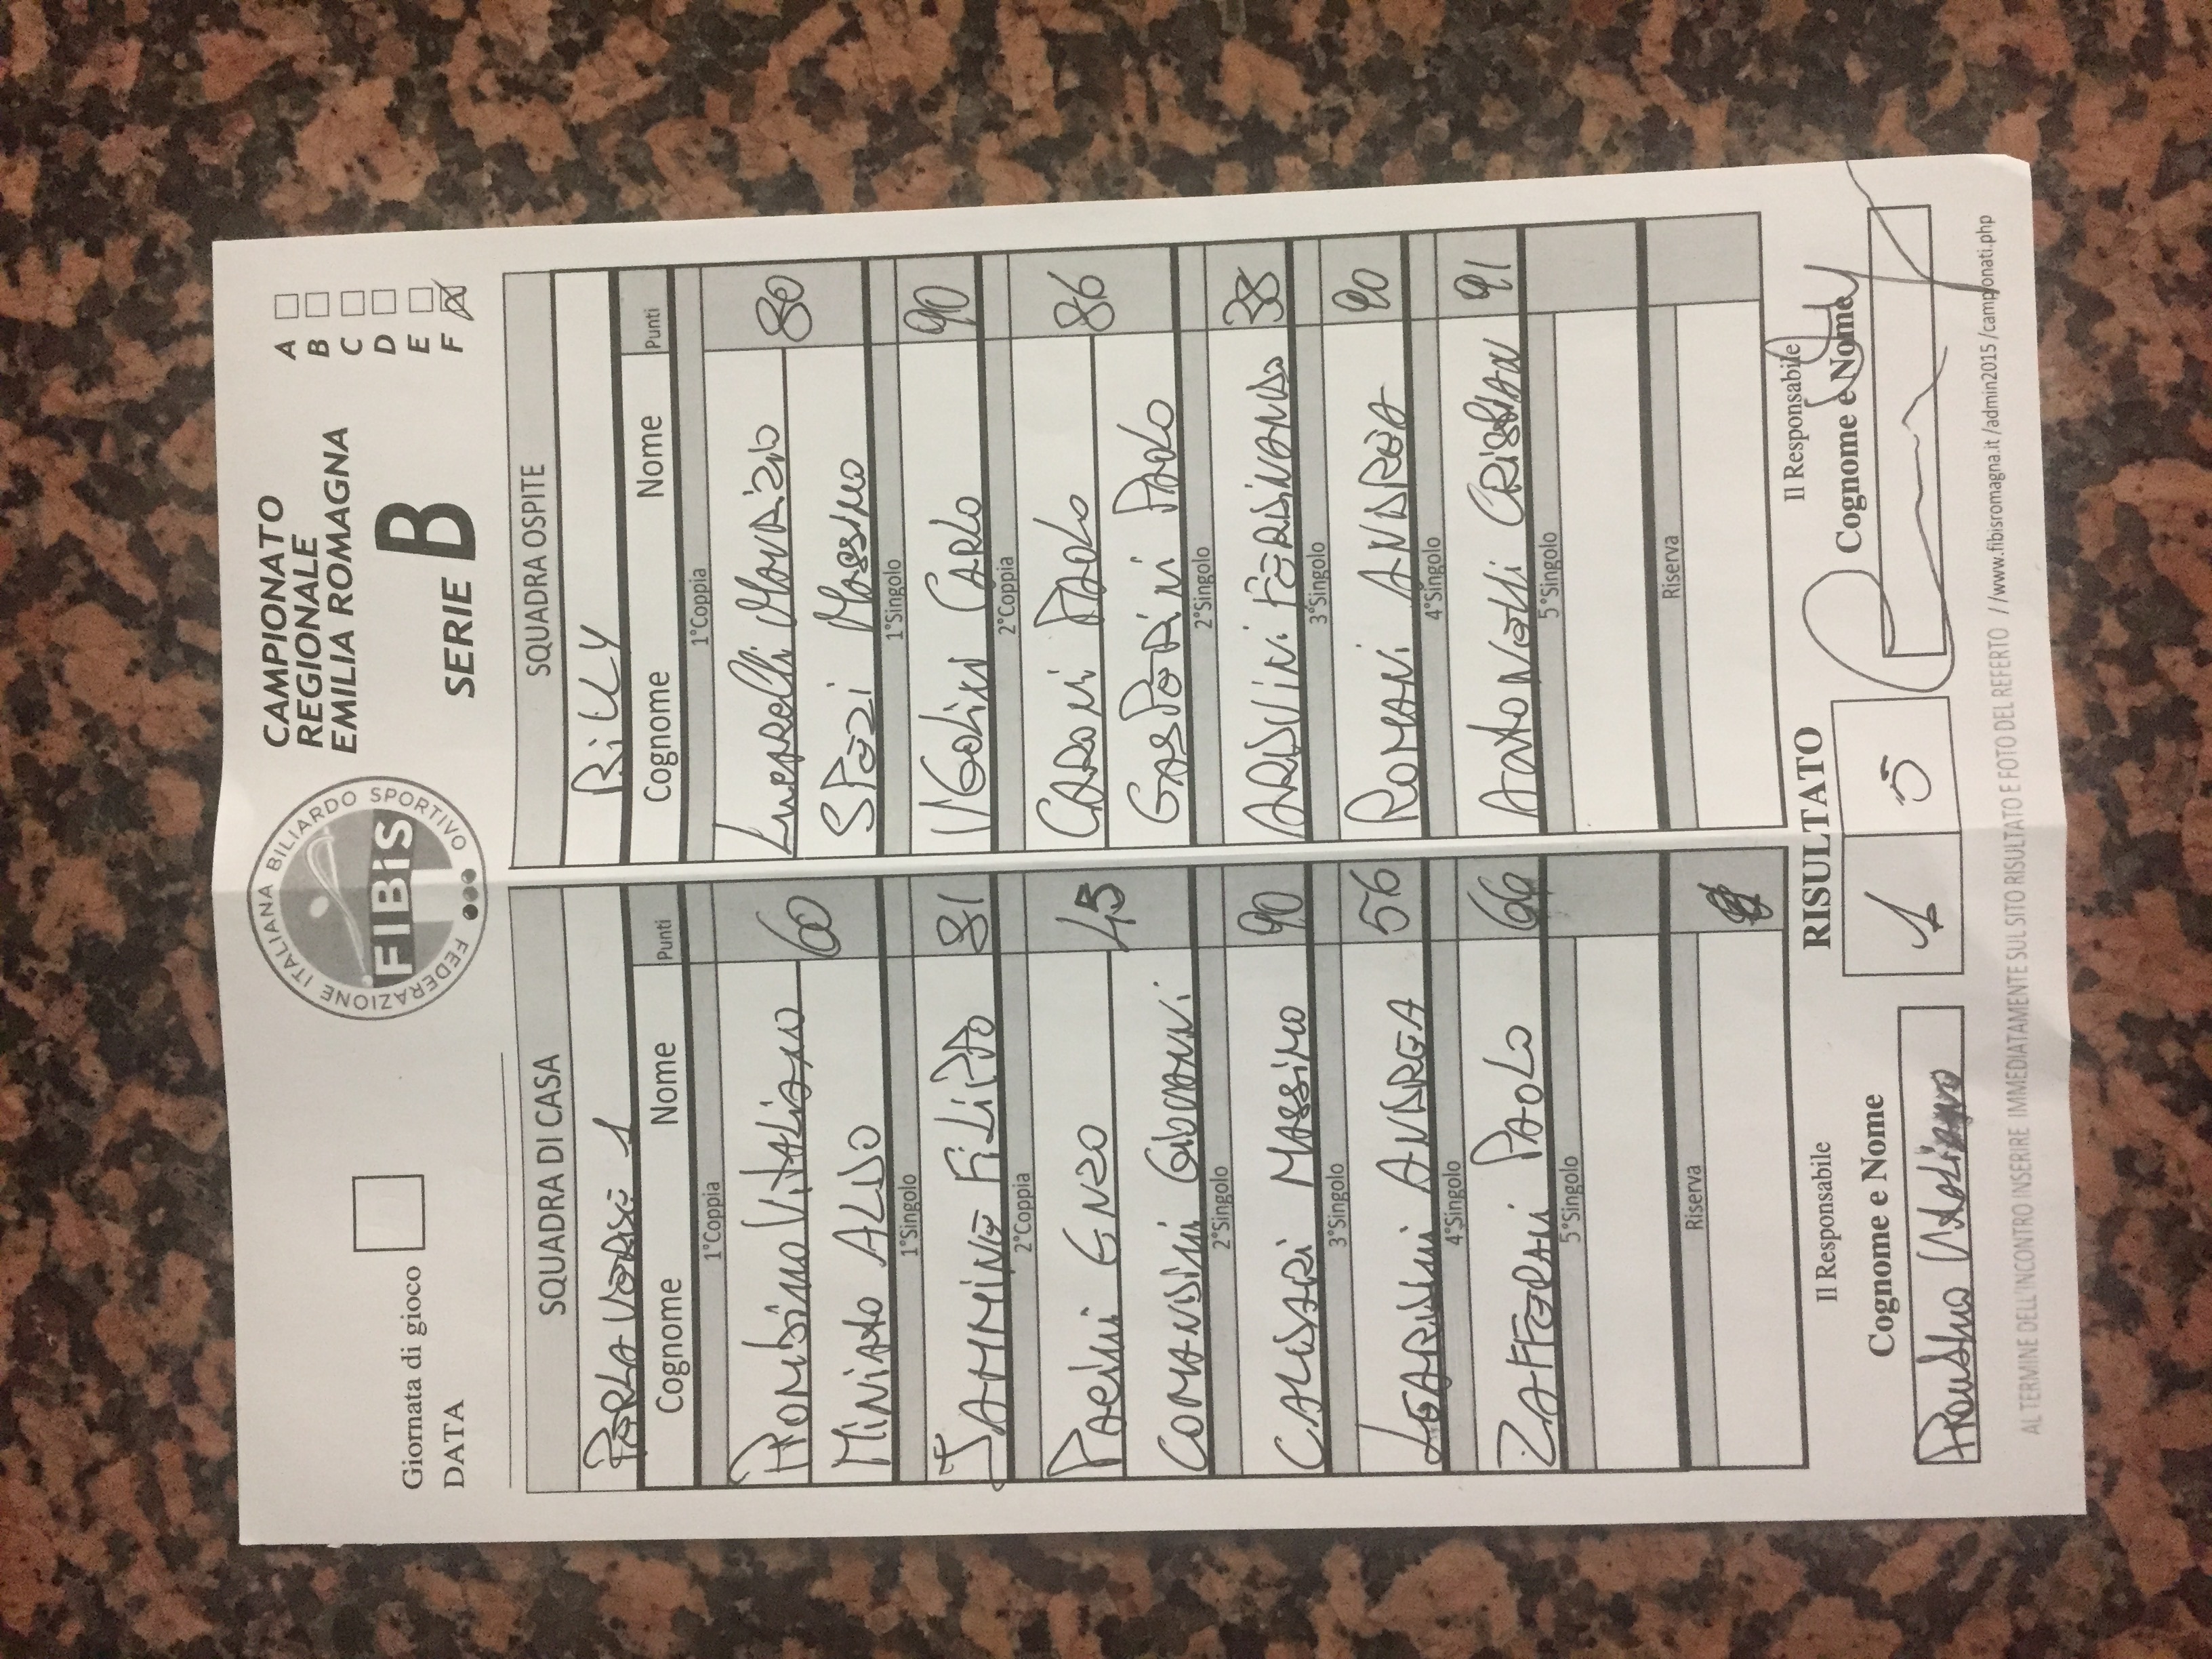 FEDERAZIONE ITALIANA BILIARDO SPORTIVO
FIBiS
CAMPIONATO
REGIONALE
EMILIA ROMAGNA
SERIE B
A
B
C
D
E
F
Giornata di gioco
DATA
SQUADRA DI CASA
PERLA VERDE 1
Cognome Nome Punti
1°Coppia
VITALIANO 60
MINIATO ALDO
1°Singolo
FILIPPO 81
2°Coppia
ENZO 45
COMANDINI GIOVANNI
2°Singolo
CALISARI MASSIMO 90
3°Singolo
LEARDINI ANDREA 56
4°Singolo
ZAFFERANI PAOLO 66
5°Singolo
Riserva
SQUADRA OSPITE
BILLY
Cognome Nome Punti
1°Coppia
MAURIZIO 80
MASSIMO
1°Singolo
UGOLINI CARLO 90
2°Coppia
CARONI PAOLO 86
GASPERINI PAOLO
2°Singolo
ARDUINI FERDINANDO 38
3°Singolo
ROMANI ANDREA 90
4°Singolo
ANTONELLI CRISTIAN 91
5°Singolo
Riserva
Il Responsabile
Cognome e Nome
RISULTATO
1 5
Il Responsabile
Cognome e Nome
AL TERMINE DELL'INCONTRO INSERIRE IMMEDIATAMENTE SUL SITO RISULTATO E FOTO DEL REFERTO //www.fibisromagna.it /admin2015 /campionati.php